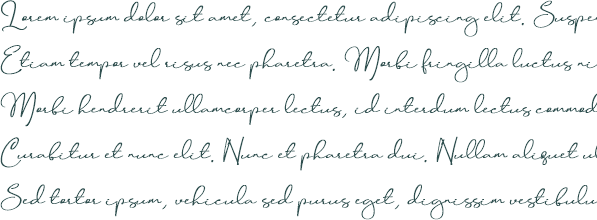 Lorem ipsum dolor sit amet, consectetur adipiscing elit. Suspe
Etiam tempor vel risus nec pharetra. Morbi fringilla luctus ni
Morbi hendrerit ullamcorper lectus, id interdum lectus commod
Curabitur et nunc elit. Nunc et pharetra dui. Nullam aliquet ul
Sed tortor ipsum, vehicula sed purus eget, dignissim vestibulu